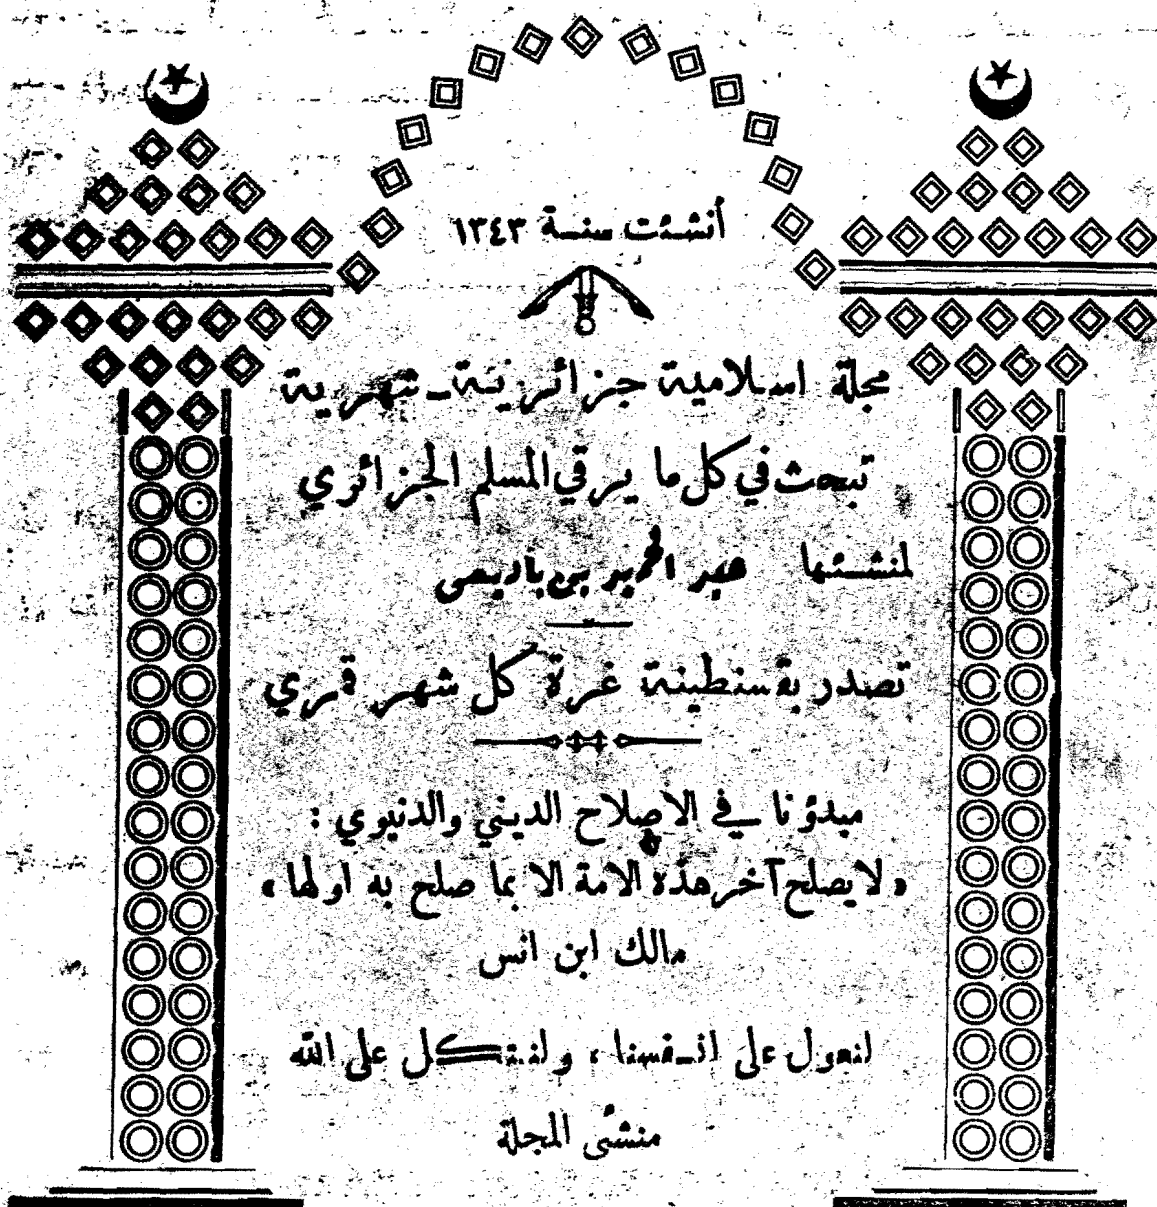 أنشئت سنة ١٣٤٣
مجلة اسلامية جزائرية ـ شهرية
تبحث في كل ما يرقي المسلم الجزائري
لمنشئها عبد الحميد بن باديس
تصدر بقسنطينة غرة كل شهر قمري
مبدؤنا في الاصلاح الديني والدنيوي :
« لا يصلح آخر هذه الامة الا بما صلح به اولها »
مالك ابن انس
لنعول على انفسنا ، ولنتكل على الله
منشئ المجلة